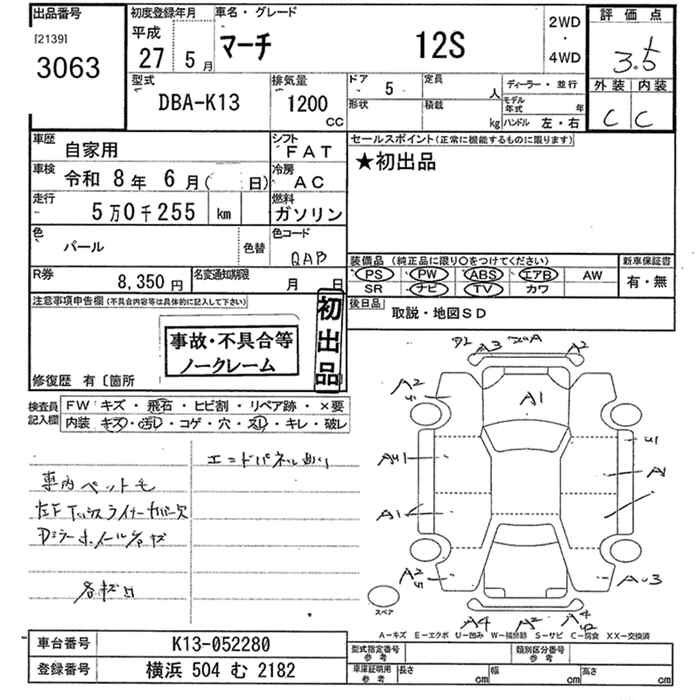 出品番号
[2139]
3063
初度登録年月
平成
27 5月
車名・グレード
マーチ 12S
2WD
・
4WD
評価点
3.5
外装 内装
C C
型式
DBA-K13
排気量
1200
CC
ドア 5
定員 人
形状
積載 kg
ディーラー・並行
モデル年式 年
ハンドル 左・右
車歴 自家用
車検 令和 8年 6月( 日)
走行 5万0千255 km
色 パール 色替
シフト FAT
冷房 AC
燃料 ガソリン
色コード QAB
セールスポイント(正常に機能するものに限ります)
★初出品
装備品(純正品に限り○をつけてください)
PS PW ABS エアB AW
SR ナビ TV カワ
新車保証書
有・無
R券 8,350円
名変通知期限 月 日
後日品 取説・地図SD
注意事項申告欄(不具合内容等は具体的に記入して下さい)
事故・不具合等
ノークレーム
初出品
修復歴 有〔箇所
検査員記入欄
FW キズ・飛石・ヒビ割・リペア跡・×要
内装 キズ・汚レ・コゲ・穴・スレ・キレ・破レ
エンドパネル
車内ペット毛
A3 A2
A2
A1
AU1 U1
A1
A1
A2
AU3
A4 A2
スペア
A-キズ E-エクボ U-凹み W-補修跡 S-サビ C-腐食 XX-交換済
車台番号 K13-052280
登録番号 横浜 504 む 2182
型式指定番号 参考
類別区分番号 参考
車庫証明用 参考 長さ cm 幅 cm 高さ cm